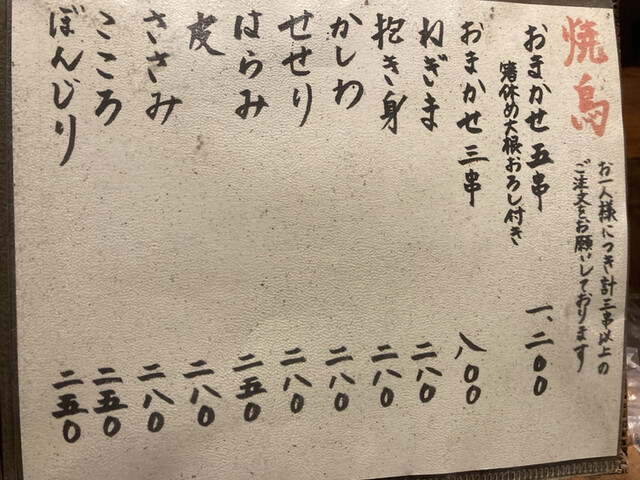 焼鳥
お一人様につき計三串以上の
ご注文をお願いしております
おまかせ五串 一、二〇〇
箸休め大根おろし付き
おまかせ三串 八〇〇
ねぎま 二八〇
抱き身 二八〇
かしわ 二八〇
せせり 二八〇
はらみ 二五〇
皮 二八〇
ささみ 二八〇
こころ 二五〇
ぼんじり 二五〇